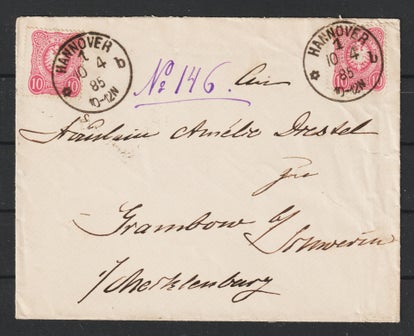 HANNOVER
1 b
10 4
85
10-12N
10 10
HANNOVER
1 b
10 4
85
10-12N
10
No 146. An
Fräulein Amélie Drestel
zu
Grambow b/
Schwerin
i/Mecklenburg